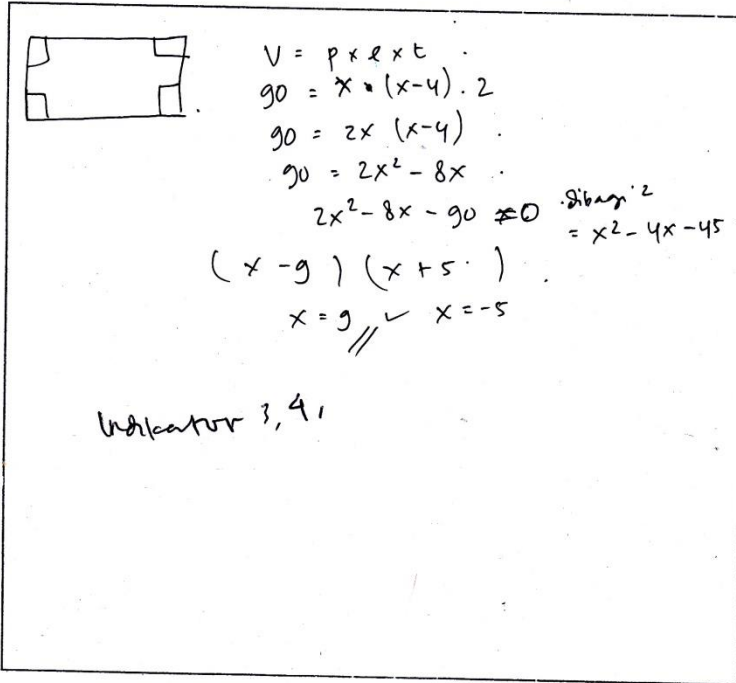 V = p x l x t
90 = x . (x-4) . 2
90 = 2x (x-4)
90 = 2x² - 8x
2x² - 8x - 90 = 0 dibagi 2
= x² - 4x - 45
(x - 9) (x + 5)
x = 9 // ✓ x = -5
Indikator 3, 4,